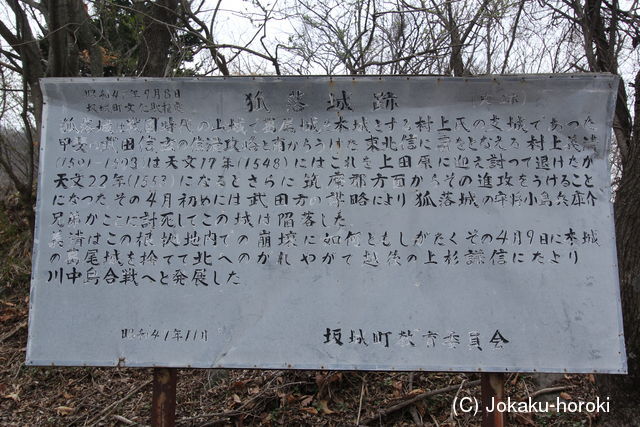 昭和4 年9月8日
坂城町文化財指定
狐落城跡
狐落城は戦国時代の山城で葛尾城を本城とする村上氏の支城であった
甲斐の武田信玄の信濃攻略を南からうけた東北信に覇をとなえる村上義清
(1501-1573)は天文17年(1548)にはこれを上田原に迎え討って退けたが
天文22年(1553)になるとさらに筑摩郡方面からその進攻をうけること
になったその4月初めには武田方の謀略により狐落城の守将小島兵庫介
兄弟がここに討死してこの城は陥落した
義清はこの根拠地内での崩壊に如何ともしがたくその4月9日に本城
の葛尾城を捨てて北へのがれやがて越後の上杉謙信にたより
川中島合戦へと発展した
昭和41年11月
坂城町教育委員会
(C) Jokaku-horoki